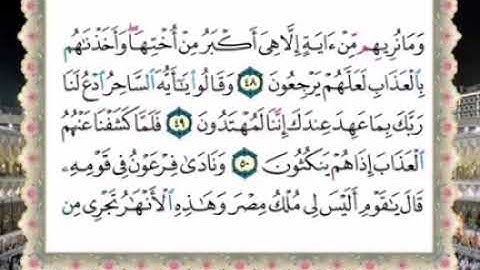 وَمَا نُرِيهِم مِّنْ ءَايَةٍ إِلَّا هِىَ أَكْبَرُ مِنْ أُخْتِهَا ۖ وَأَخَذْنَٰهُم
بِٱلْعَذَابِ لَعَلَّهُمْ يَرْجِعُونَ ٤٨ وَقَالُوا۟ يَٰٓأَيُّهَ ٱلسَّاحِرُ ٱدْعُ لَنَا
رَبَّكَ بِمَا عَهِدَ عِندَكَ إِنَّنَا لَمُهْتَدُونَ ٤٩ فَلَمَّا كَشَفْنَا عَنْهُمُ
ٱلْعَذَابَ إِذَا هُمْ يَنكُثُونَ ٥٠ وَنَادَىٰ فِرْعَوْنُ فِى قَوْمِهِۦ
قَالَ يَٰقَوْمِ أَلَيْسَ لِى مُلْكُ مِصْرَ وَهَٰذِهِ ٱلْأَنْهَٰرُ تَجْرِى مِن